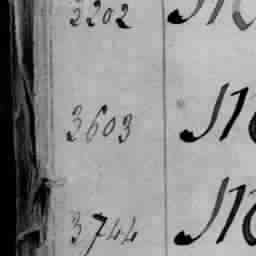 2202 M
3603 M
3744 M